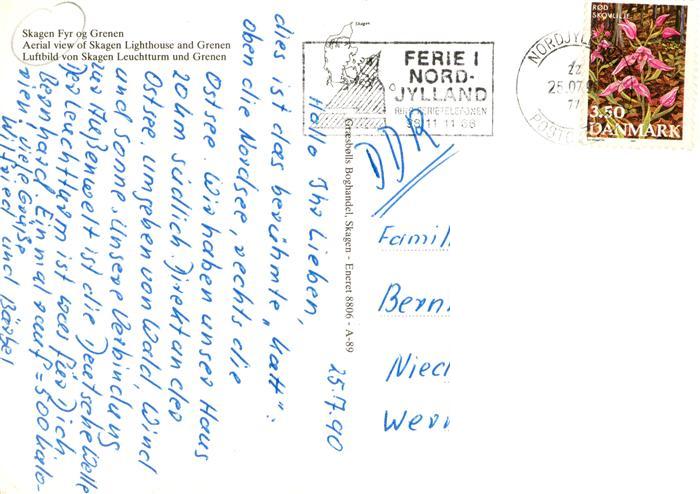 Skagen Fyr og Grenen
Aerial view of Skagen Lighthouse and Grenen
Luftbild von Skagen Leuchtturm und Grenen
Skagen
FERIE I
NORD-
JYLLAND
RING FERIETELEFONEN
98 11 11 66
NORDJYL
25.07.9
POSTC
RØD
SKOVLILJE
3.50
DANMARK
DDR
Græsbølls Boghandel, Skagen - Eneret 8806 - A-89
25.7.90
Hallo Ihr Lieben,
dies ist das berühmte „Katt":
oben die Nordsee, rechts die
Ostsee. Wir haben unser Haus
20 km südlich. Direkt an der
Ostsee. umgeben von Wald, Wind
und Sonne. Unsere Verbindung
zur Außenwelt ist die Deutsche Welle
Der Leuchtturm ist was für Dich
Bernhard. Einmal rauf = 500 Kalo-
rien. Viele Grüße
Wilfried und Bärbel
Famil
Bern
Nied
Wern